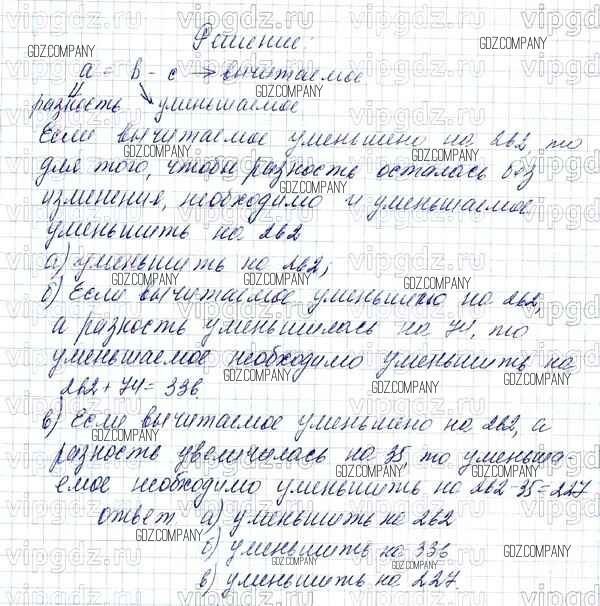 Решение:
a = b - c → вычитаемое
разность уменьшаемое
Если вычитаемое уменьшено на 262, то
для того, чтобы разность осталась без
изменения, необходимо и уменьшаемое
уменьшить на 262
а) уменьшить на 262;
б) Если вычитаемое уменьшено на 262,
а разность уменьшилась на 74, то
уменьшаемое необходимо уменьшить на
262 + 74 = 336.
в) Если вычитаемое уменьшено на 262, а
разность увеличилась на 35, то уменьша-
емое необходимо уменьшить на 262-35=227
ответ а) уменьшить на 262
б) уменьшить на 336
в) уменьшить на 227.